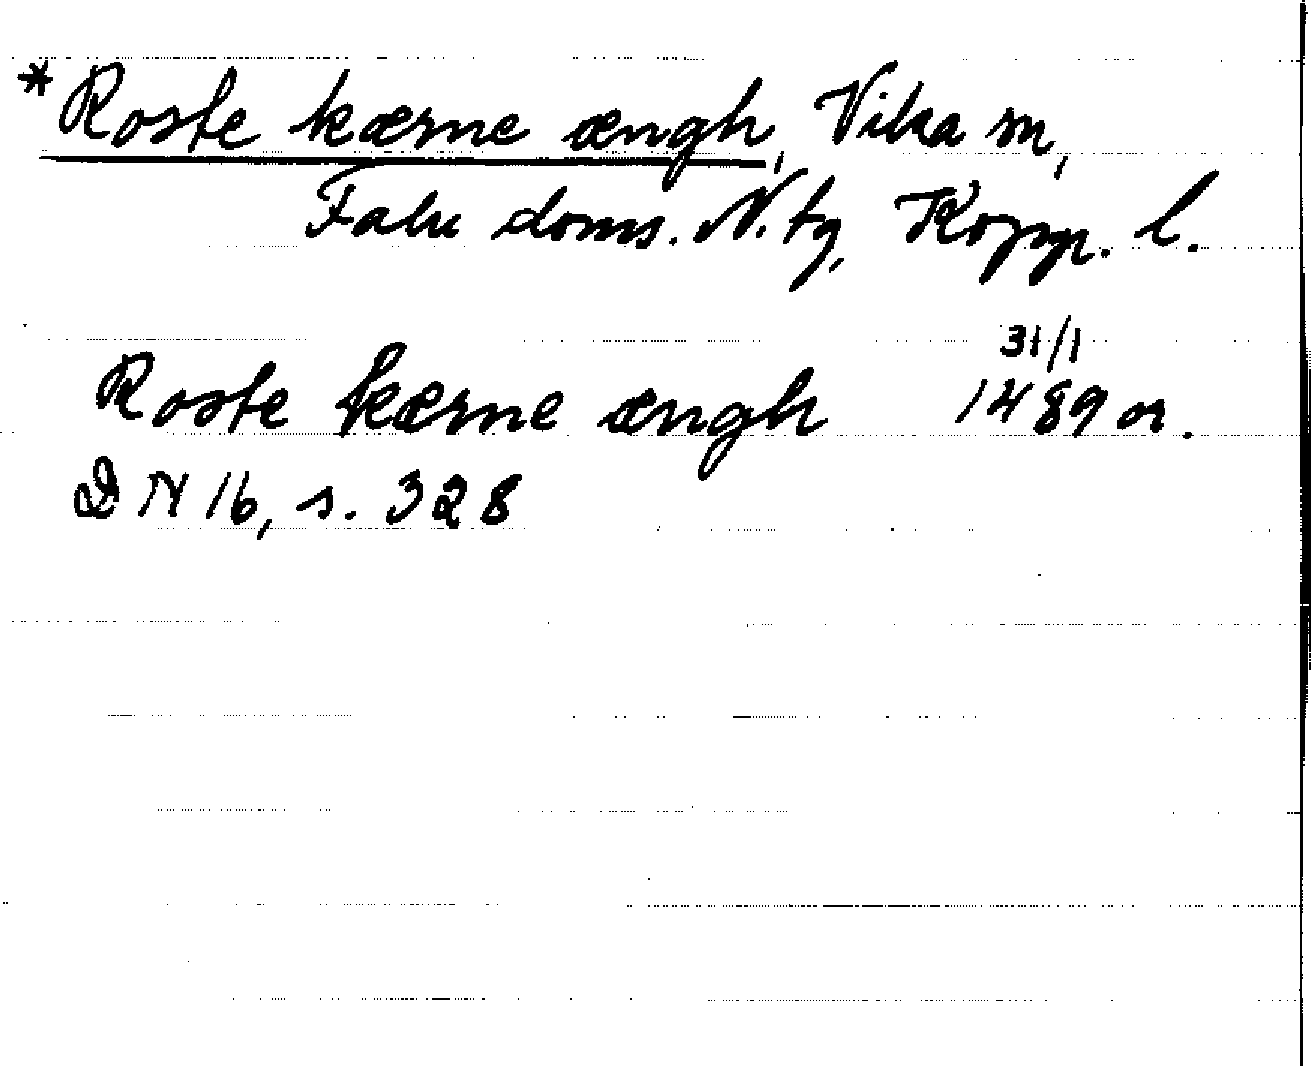 *Roste kærne ængh, Vika sn,
Falu doms. N. tg, Kopp. l.
31/1
Roste kærne ængh 1489 or.
DN 16, s. 328